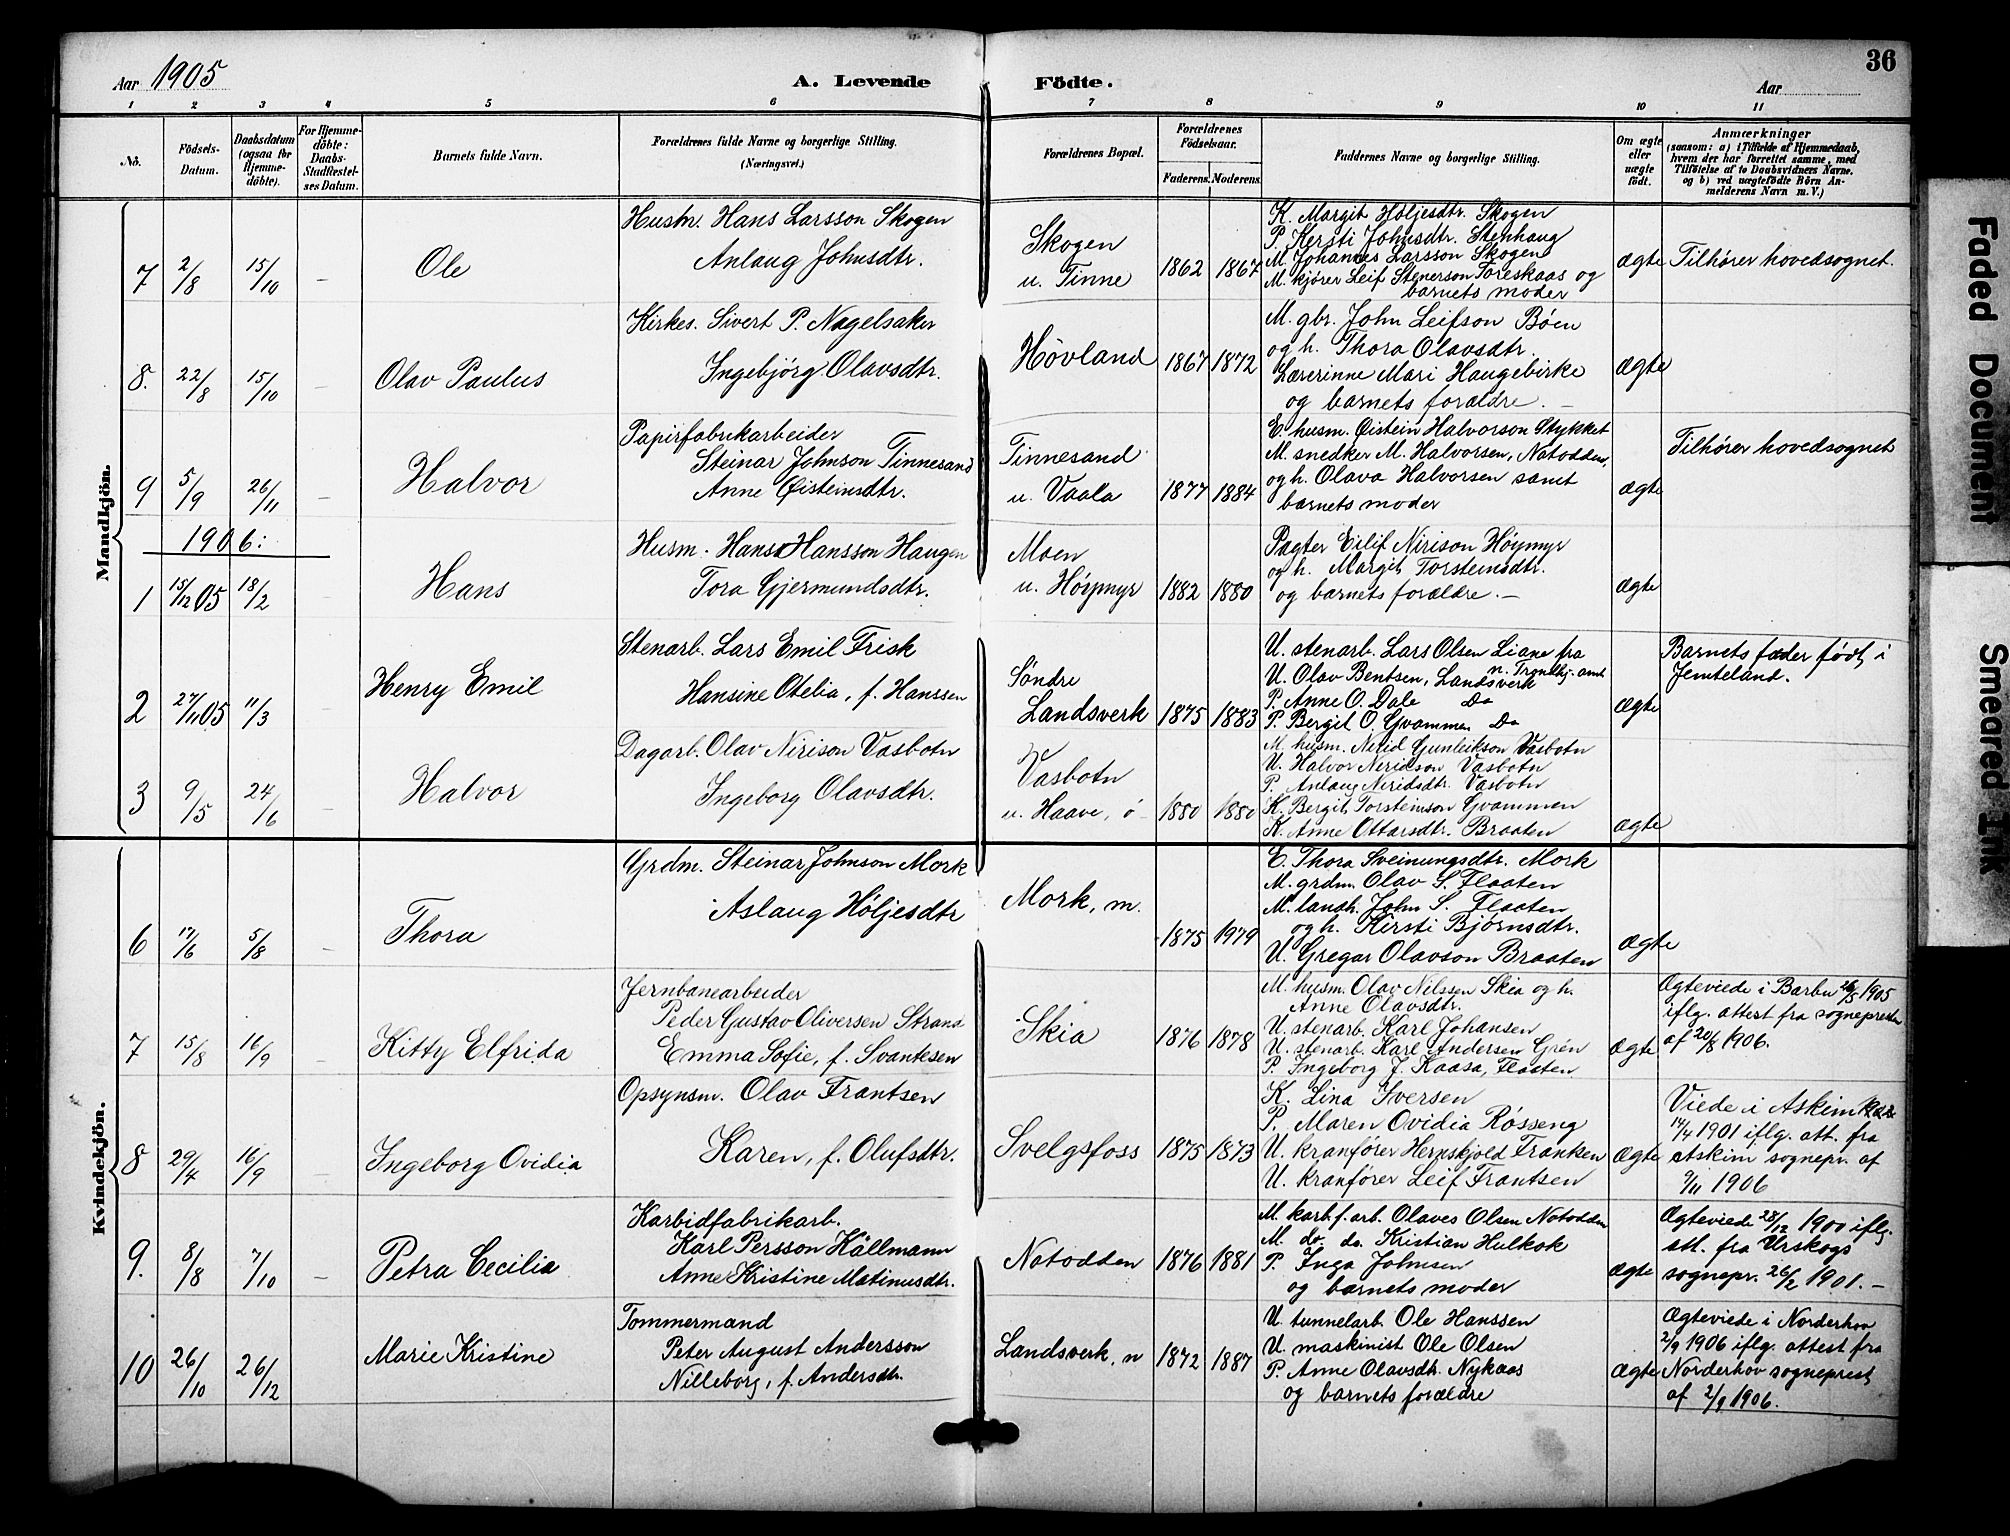 36
Aar 1905
A. Levende
Födte.
Aar
1 2 3 4 5 6 7 8 9 10 11
No.
Födsels-Datum.
Daabsdatum (ogsaa for Hjemme-döbte).
For Hjemme-döbte: Daabs-Stadfestel-ses Datum.
Barnets fulde Navn.
Forældrenes fulde Navne og borgerlige Stilling.
(Næringsvei.)
Forældrenes Bopæl.
Forældrenes Födselsaar.
Faderens. Moderens.
Faddernes Navne og borgerlige Stilling.
Om ægte eller uægte födt.
Anmærkninger
(saasom: a) i Tilfælde af Hjemmedaab,
hvem der har forrettet samme, med
Tilföielse af to Daabsvidners Navne.
og b) ved uægtefödte Börn An-
melderens Navn m. V.)
Mandkjön.
7 2/8 15/10 – Ole
Husm. Hans Larsson Skogen
Anlaug Johnsdtr.
Skogen
u. Tinne
1862 1867
K. Margit Høljesdtr. Skogen
P. Kersti Johnsdtr. Stenhaug
M. Johannes Larsson Skogen
M. kjører Leif Stenerson Toreskaas og
barnets moder
ægte
Tilhører hovedsognet.
8. 22/8 15/10 – Olav Paulus
Kirkes. Sivert P. Nagelsaker
Ingebjörg Olavsdtr.
Hövland
1867 1872
M. gbr. John Leifson Böen
og h. Thora Olavsdtr.
Lærerinne Mari Haugebirke
og barnets forældre. –
ægte
9 5/9 26/11 – Halvor
Papirfabrikarbeider
Steinar Johnson Tinnesand
Anne Øisteinsdtr.
Tinnesand
u. Vaala
1877 1884
E. husm. Øistein Halvorson Stykket
M. snedker M. Halvorsen, Notodden,
og h. Olava Halvorsen samt
barnets moder
ægte
Tilhører hovedsognet
1906:
1 15/12 05 18/2 Hans
Husm. Hans Hansson Haugen
Tora Gjermundsdtr.
Moen
u. Høymyr
1882 1880
Pagter Eilif Nirison Höymyr
og h. Margit Torsteinsdtr.
og barnets forældre. –
ægte
2 27/11 05 11/3 – Henry Emil
Stenarb. Lars Emil Frisk
Hansine Otelia, f. Hanssen
Søndre
Landsverk
1875 1883
U. stenarb. Lars Olsen Liane fra
n. Trondhj. amt
U. Olav Bentsen, Landsverk
P. Anne O. Dale Do
P. Bergit O. Gvammen Do
ægte
Barnets fader født i
Jemteland.
3 9/5 24/6 – Halvor
Dagarb. Olav Nirison Vasbotn
Ingeborg Olavsdtr.
Vasbotn
u. Haave, ö
1880 1880
M. husm. Nerid Gunleikson Vasbotn
U. Halvor Neridson Vasbotn
P. Anlaug Neridsdtr. Vasbotn
K. Bergit Torsteinson Gvammen
K. Anne Ottarsdtr. Braaten
ægte
Kvindekjön.
6 17/6 5/8 – Thora
Grdm. Steinar Johnson Mork
Aslaug Höljesdtr
Mork, m.
1875 1979
E. Thora Sveinungsdtr. Mork
M. grdm. Olav S. Flaaten
M. landh. John S. Flaaten
og h. Kirsti Bjørnsdtr.
U. Gregar Olavson Braaten
ægte
7 15/8 16/9 – Kitty Elfrida
Jernbanearbeider
Peder Gustav Oliversen Strand
Emma Sofie, f. Svantesen
Skia
1876 1878
M. husm. Olav Nilssen Skia og h.
Anne Olavsdtr.
U. stenarb. Karl Johansen
U. stenarb. Karl Andersen Grén
P. Ingeborg J. Kaasa, Flaaten
ægte
Ægteviede i Barbu 26/5 1905
iflg. attest fra sogneprest
af 20/8 1906.
8 29/4 16/9 Ingeborg Ovidia
Opsynsm. Olav Frantsen
Karen, f. Olufsdtr.
Svelgsfoss
1875 1873
K. Lina Iversen
P. Maren Ovidia Røsseng
U. kranfører Hernskjold Frantsen
U. kranfører Leif Frantsen
ægte
Viede i Askim
17/4 1901 iflg. att. fra
Askim sognepr. af
9/11 1906
9. 8/8 7/10 – Petra Cecilia
Karbidfabrikarb.
Karl Persson Hällmann
Anne Kristine Matinusdtr.
Notodden
1876 1881
M. karb.f.arb. Olaves Olsen Notodden
M. do. do. Kristian Hulkok
P. Inga Johnsen
og barnets moder
ægte
Ægteviede 28/12 1900 iflg.
att. fra Urskogs
sognepr. 26/2 1901. –
10 26/10 26/12 Marie Kristine
Tommermand
Peter August Andersson
Nilleborg, f. Andersdtr.
Landsverk, n
1872 1887
U. tunnelarb. Ole Hanssen
U. maskinist Ole Olsen
P. Anne Olavsdtr. Nykaas
og barnets forældre
ægte
Ægteviede i Norderhov
2/9 1906 iflg. attest fra
Norderhov sogneprest
af 2/9 1906.
Faded Document
Smeared Ink